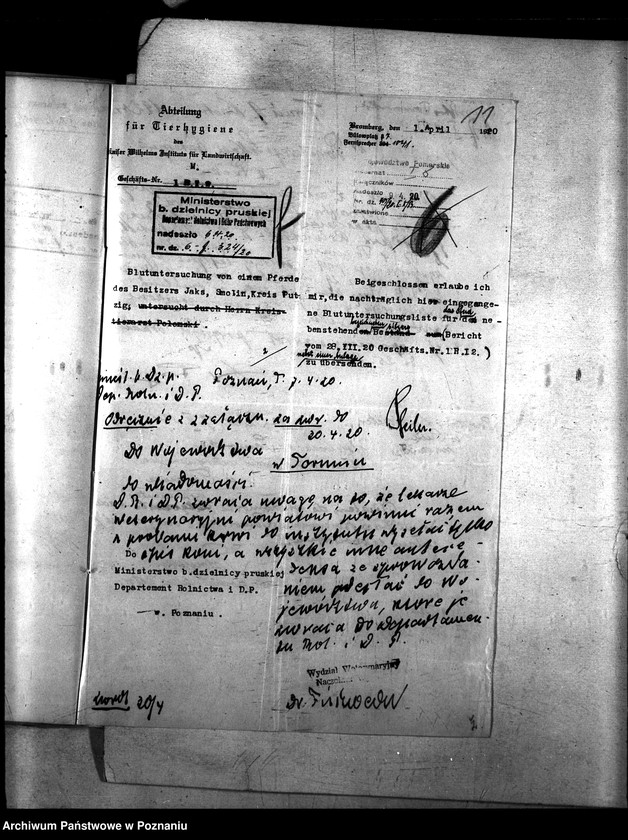 11
Abteilung
für Tierhygiene
des
Kaiser Wilhelms Instituts für Landwirtschaft.
Geschäfts-Nr.
Bromberg, den 1. April 1920
Bülowplatz
Fernsprecher
Ministerstwo
b. dzielnicy pruskiej
Departament Rolnictwa i Dóbr Państwowych
nadeszło 6.IV.20
nr. dz. 324/20
Pomorskie
nadeszło 4.20
w akta
6
Blutuntersuchung von einem Pferde
des Besitzers Jaks, Smolin, Kreis Put-
zig, untersucht durch Herrn Kreis-
tierarzt Polomski.
Beigeschlossen erlaube ich
mir, die nachträglich hier eingegange-
ne Blutuntersuchungsliste für das ne-
benstehenden Bestand (Bericht
vom 29.III.20 Geschäfts.Nr. 1.H.12.)
zu übersenden.
Poznań, 7.4.20.
Dep. Roln. i D.P.
Odręcznie z załączn. za zwr. do
20.4.20.
Do Województwa
w Toruniu
do wiadomości.
D.R. i D.P. zwraca uwagę na to, że lekarze
weterynaryjni powiatowi powinni razem
z probami krwi do instytutu wysełać tylko
opis koni, a wszystkie inne
ze sprowozda-
niem odesłać do Wo-
jewództwa, które je
zwraca do Departamen-
tu Rol. i D.P.
Do
Ministerstwo b.dzielnicy pruskiej
Departament Rolnictwa i D.P.
w. Poznaniu.
Wydział Weterynaryjny
Dr.
20/4
Archiwum Państwowe w Poznaniu